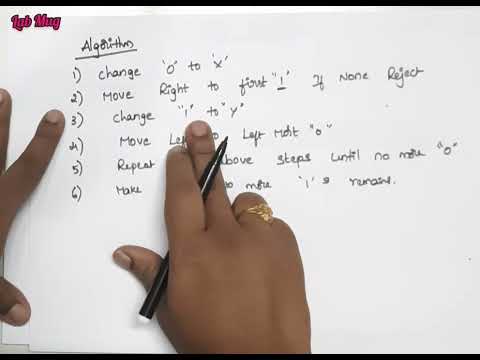 Lab Mug
Algorithm
1) Change "0" to "X"
2) Move Right to first "1" If None Reject
3) Change "1" to "Y"
4) Move Left Left Most "0"
5) Repeat above steps until no more "0"
6) Make no more "1"s remains.